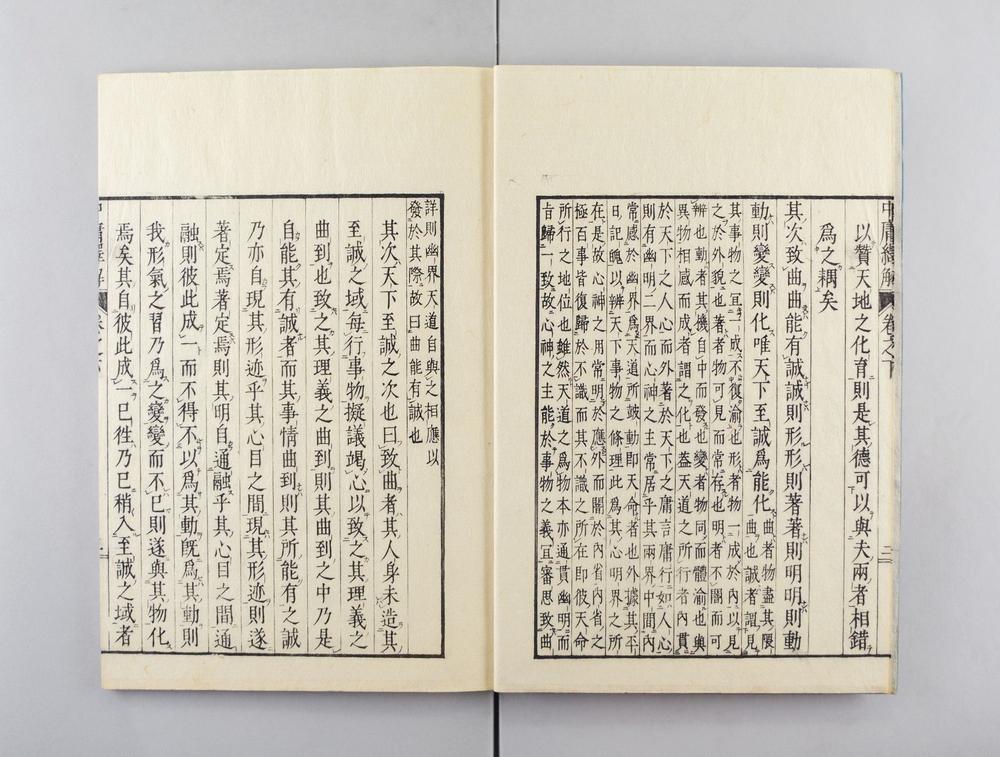 中庸繹解 卷之下 二
以贊天地之化育則是其德可以與夫兩者相錯
爲之耦矣
其次致曲曲能有誠誠則形形則著著則明明則動
動則變變則化唯天下至誠爲能化
曲者物盡其隈
曲也誠者謂見
其事物之宜一成不復渝也形者物一成於內以見
之於外貌也著者物可見而常存也明者不闇而可
辨也動者其機自中而發也變者物同而體渝也與
異物相感而成者謂之化也葢天道之所行者內貫
於天下之人心而外著於天下之庸言庸行如人心
則有幽明二界而心神之主常居乎其兩界中間內
常感於幽界爲天道所皷動即天命者也外據其平
日記䰟以辨天下事物之條理此爲其心明界之所
在是故心神之用常明於應外而闇於內省內省之
極百事皆復歸於不識而其不識之所在即彼天命
所行之地位也雖然天道之爲物本亦通貫幽明而
旨歸一致故心神之主能於事物之義宜審思致曲
詳則幽界天道自與之相應以
發於其際故曰曲能有誠也
其次天下至誠之次也曰致曲者其人身未造其
至誠之域每行事物擬議竭心以致之其理義之
曲到也致之其理義之曲到則其曲到之中乃是
自能其有誠者而其事情曲到則其所能有之誠
乃亦自現其形迹乎其心目之間現其形迹則遂
著定焉著定焉則其明自通融乎其心目之間通
融則彼此成一而不得不以爲其動既爲其動則
我形氣之習乃爲之變變而不已則遂與其物化
焉矣其自彼此成一已徃乃已稍入至誠之域者